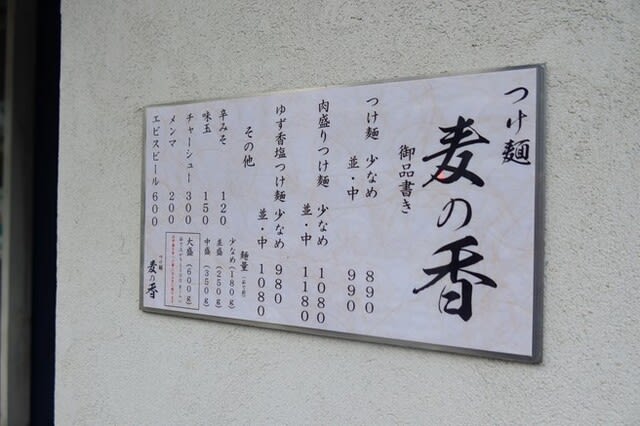 つけ麺
麦の香
御品書き
つけ麺 少なめ 890
並・中 990
肉盛りつけ麺 少なめ 1080
並・中 1180
ゆず香塩つけ麺 少なめ 980
並・中 1080
その他
辛みそ 120
味玉 150
チャーシュー 300
メンマ 200
エビスビール 600
麺量
少なめ(180g)
並盛(250g)
中盛(350g)
大盛(600g)
つけ麺
麦の香